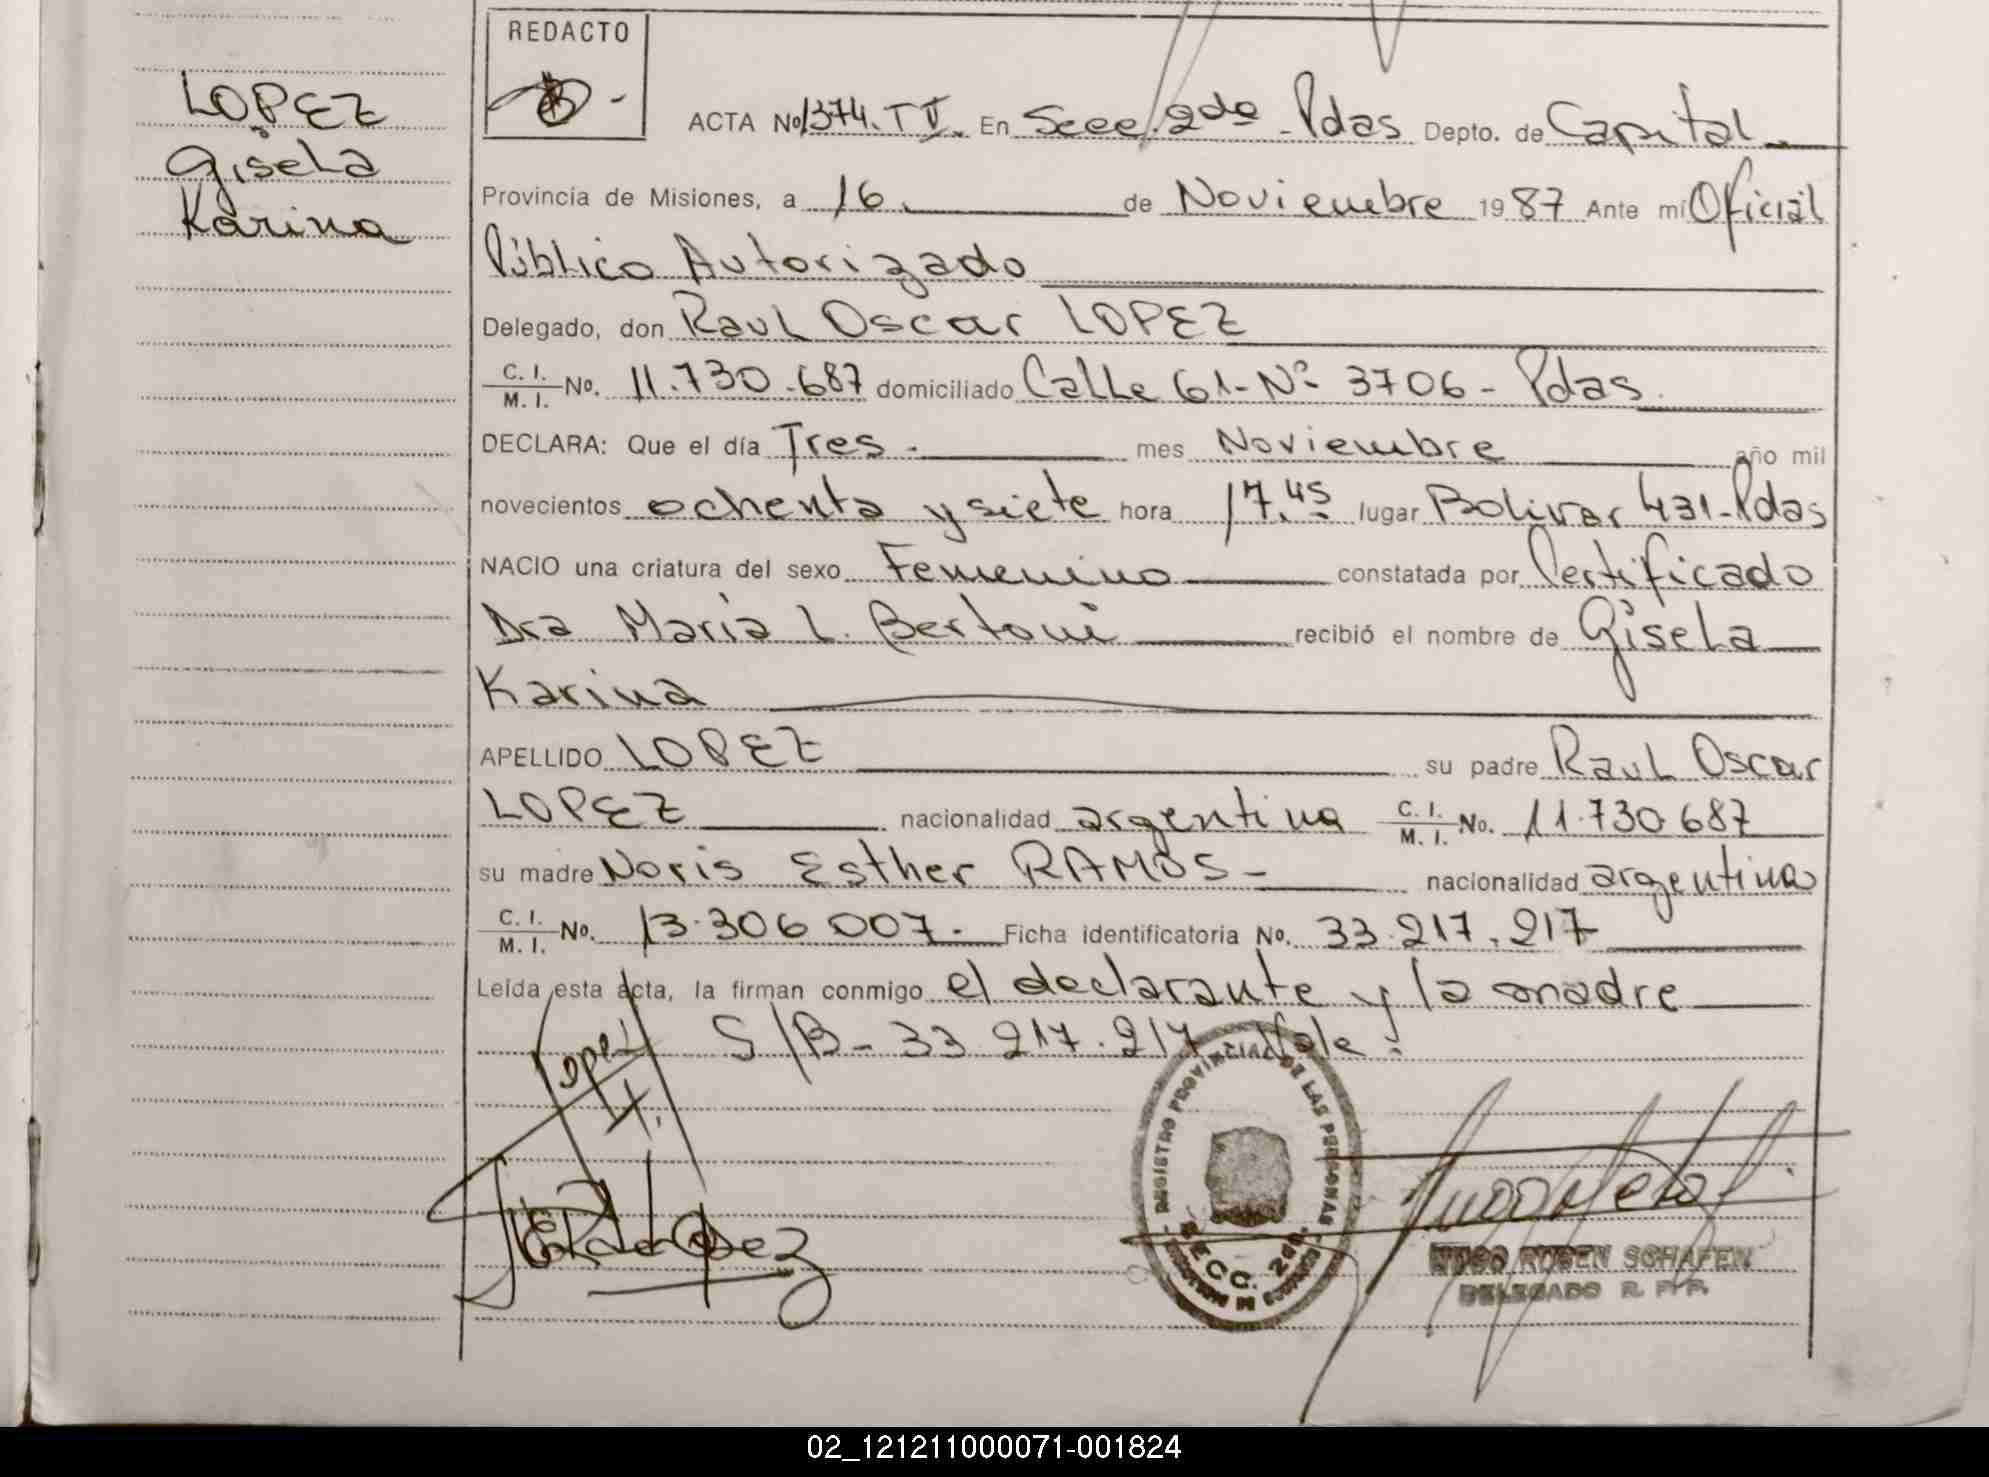 REDACTO
LOPEZ
Gisela
Karina
ACTA No 1374. T V. En Secc. 2da Pdas Depto. de Capital
Provincia de Misiones, a 16 de Noviembre 1987 Ante mi Oficial
Público Autorizado
Delegado, don Raul Oscar LOPEZ
C. I. / M. I. No. 11.730.687 domiciliado Calle 61 - Nº 3706 - Pdas.
DECLARA: Que el día Tres - mes Noviembre año mil
novecientos ochenta y siete hora 17.45 lugar Bolivar 431 - Pdas
NACIO una criatura del sexo Femenino constatada por Certificado
Dra Maria L. Bertoni recibió el nombre de Gisela
Karina
APELLIDO LOPEZ su padre Raul Oscar
LOPEZ nacionalidad argentina C. I. / M. I. No. 11.730.687
su madre Noris Esther RAMOS - nacionalidad argentina
C. I. / M. I. No. 13.306.007. Ficha identificatoria No. 33.217.217
Leída esta acta, la firman conmigo el declarante y la madre
S/B - 33.217.217 Vale.
Lopez
REGISTRO PROVINCIAL DE LAS PERSONAS
SECC. 2da.
Lopez
HUGO RUBEN SCHAFEN
DELEGADO R. P. P.
02_121211000071-001824